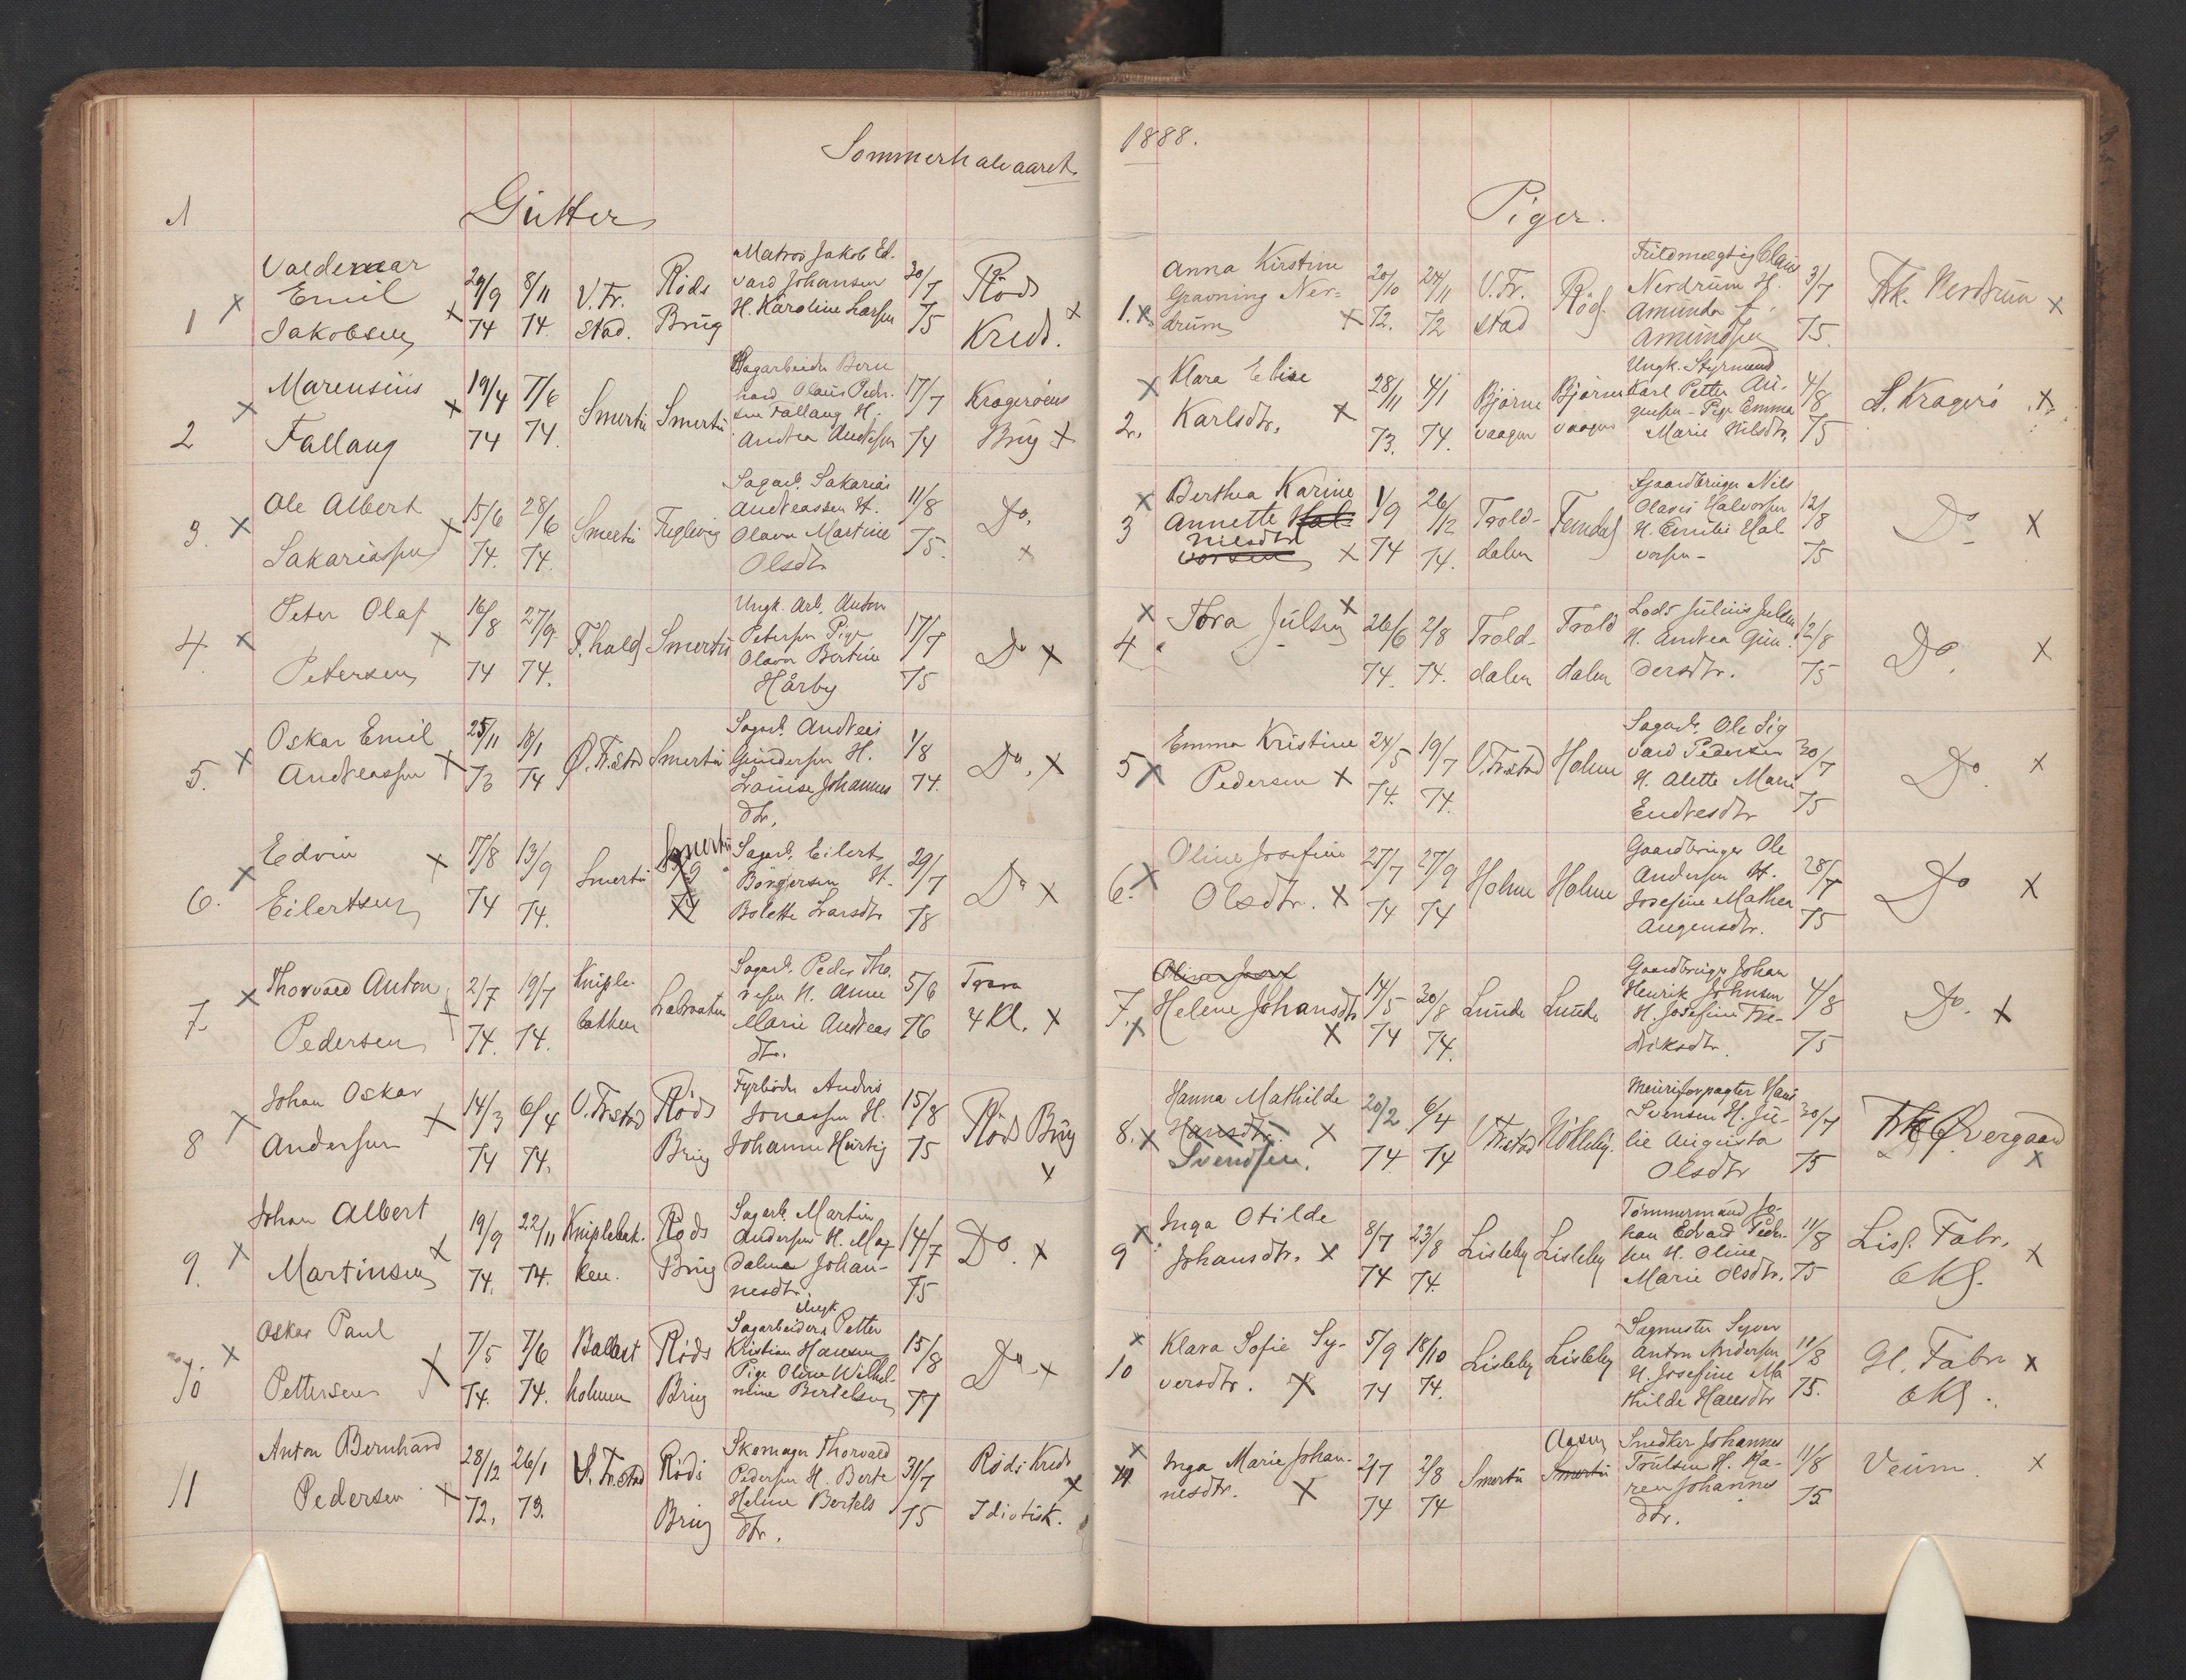 Sommerhalvaaret
1
Gutter
Valdemar
Emil
Jakobsen
1
29/9 74
8/11 74.
V. Fr.
stad.
Røds
Brug
Matros Jakob Ed-
vard Johansen
H. Karoline Larsen
30/7 75
Røds
Kreds.
2
Marensius
Fallang
19/4 74
7/6 74.
Smertu
Smertu
Sagarbeider Bern
hard Olaus Peder-
sen Fallang H.
Andrea Andersen
17/7 74
Kragerøens
Brug
3.
Ole Albert
Sakariassen
15/6 74.
28/6 74.
Smertu
Fuglevig
Sagarb. Sakarias
Andreassen H.
Olava Martine
Olsdtr
11/8 75.
Do.
4.
Peter Olaf
Petersen
16/8 74
27/9. 74.
F. hald
Smertu
Ungk. Arb. Anton
Petersen Pige
Olava Bertine
Hårby
17/7 75
Do
5.
Oskar Emil
Andreassen
25/11 73
18/1 74
Ø. Fr.stad
Smertu
Sagarb. Andreas
Gundersen H.
Lovise Johannes
dtr.
1/8 74.
Do.
6.
Edvin
Eilertsen
17/8 74
13/9 74.
Smertu
Smertu
Sagarb. Eilert
Børgersen H.
Bolette Larsdtr
29/7 78
Do
7
Thorvald Anton
Pedersen
2/7 74.
19/7 74.
Kniple-
bakken
Labraaten
Sagarb. Peder Tho-
resen H. Anne
Marie Andreas
dtr.
5/6 76
Trara
4 Kl.
8
Johan Oskar
Andersen
14/3 74
6/4 74.
V. Fr.stad
Røds
Brug
Fyrbøder Anders
Jonassen H.
Johanne Hurtig
15/8 75
Røds Brug
9.
Johan Albert
Martinsen
19/9 74.
22/11 74.
Kniplebak-
ken.
Røds
Brug
Sagarb. Martin
Andersen H. Mag-
dalena Johan-
nesdtr.
14/7 75
Do.
10
Oskar Paul
Pettersen
7/5 74.
7/6 74.
Ballast
holmen
Røds
Brug
Ungk.
Sagarbeider Petter
Kristian Hansen
Pige Oline Wilhel-
mine Bertelsen
15/8 77
Do
11
Anton Bernhard
Pedersen
28/12 72.
26/1 73.
V. Fr.stad
Røds
Brug
Skomager Thorvald
Pedersen H. Berte
Heline Bertels
dtr.
31/7 75
Røds Kreds
Idiotisk.
1888.
Piger.
1.
Anna Kirstine
Gravning Ner-
drum
20/10 72.
24/11 72
V. Fr.
stad
Røds
Fuldmægtig Claus
Nerdrum H.
Amunda f.
Amundsen
3/7 75.
Frk. Nerdrum
2.
Klara Elise
Karlsdtr.
28/11 73.
4/1 74.
Bjørne
vaagen
Bjørne
vaagen
Ungk. Styrmand
Karl Petter Au-
gusen - Pige Emma
Marie Nilsdtr.
4/8 75
S. Kragerø
3
Berthea Karine
Annette Hal-
nilsdtr
vorsen
1/9 74
26/12 74.
Trold-
dalen
Femdal
Gaardbruger Nils
Olavis Halvorsen
H. Emilie Hal
vorsen -
12/8 75
Do
4
Tora Julsen
26/6 74.
2/8 74.
Trold-
dalen
Trold
dalen
Lods Julius Julsen
H. Andrea Gun-
dersdtr.
12/8 75
Do.
5
Emma Kristine
Pedersen
24/5 74.
19/7 74.
V. Fr.stad
Holum
Sagarb. Ole Sig
vard Pedersen
H. Alette Marie
Endresdtr
30/7 75
Do.
6.
Oline Josefine
Olsdtr.
27/7 74
27/9 74
Holum
Holum
Gaardbruger Ole
Andersen H.
Josefine Mathea
Augensdtr.
28/7 75
Do
7.
Oline Josef
Helene Johansdtr
14/5 74
30/8 74.
Lunde
Lunde
Gaardbruger Johan
Henrik Johnsen
H. Josefine Fre-
driksdtr.
4/8 75
Do.
8.
Hanna Mathilde
Hansdtr.
Svendsen.
20/2 74
6/4 74
V. Fr.stad
Nøkleby.
Meieriforpagter Hans
Svensen H. Ju-
lie Augusta
Olsdtr
30/7 75
Frk Øvergaard
9
Inga Otilde
Johansdtr.
8/7 74
23/8 74.
Lisleby
Lisleby
Tømmermand Jo-
han Edvard Peder-
sen H. Oline
Marie Olsdtr.
11/8 75
Lisl. Fabr.
6 Kl.
10
Klara Sofie Sy-
versdtr.
5/9 74
18/10 74.
Lisleby
Lisleby
Sagmester Syver
Anton Andersen
H. Josefine Ma
thilde Hansdtr
11/8 75.
Gl. Fabr
6 Kl.
11
Inga Marie Johan-
nesdtr.
2/7 74
2/8 74
Smertu
Aasen
Smertu
Snedker Johannes
Trulsen H. Ka-
ren Johannes
dtr.
11/8 75
Veum.